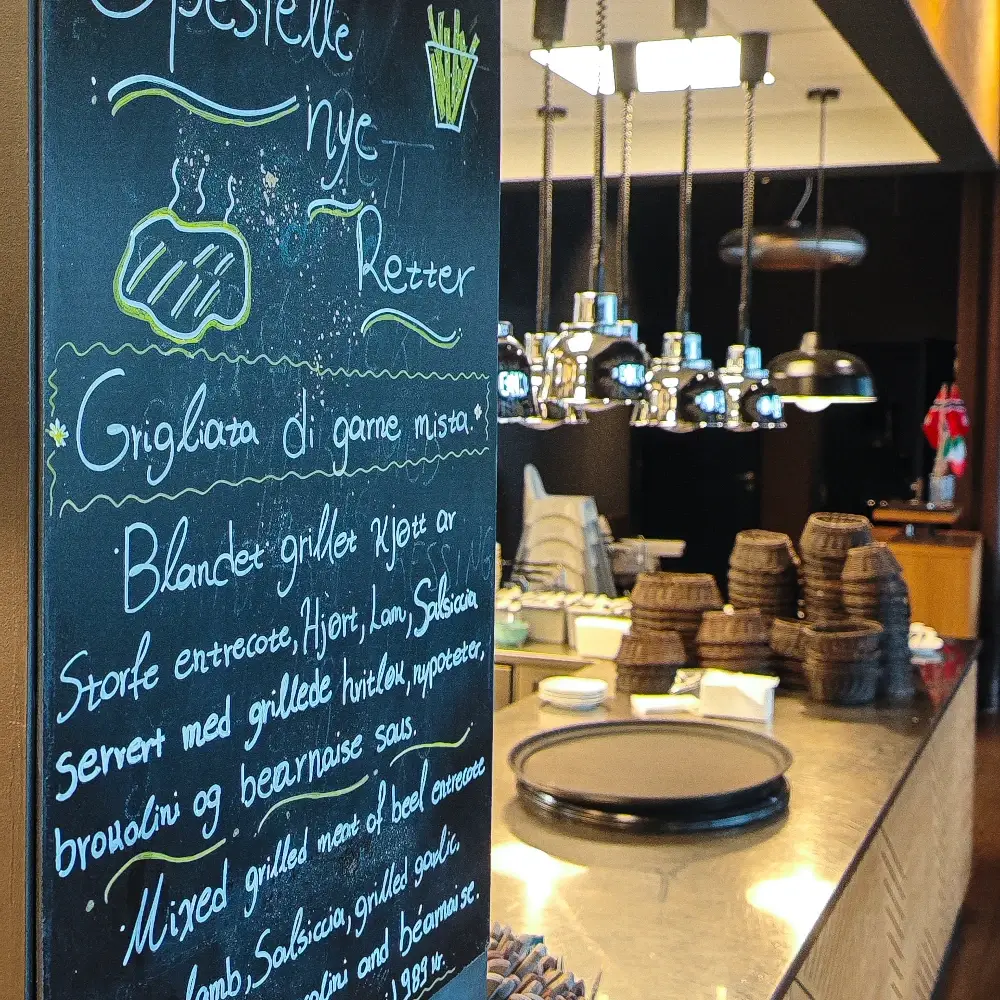 Spesielle
nye
Retter
Grigliata di garne mista.
Blandet grillet kjøtt av
Storfe entrecote, Hjort, Lam, Salsiccia
servert med grillede hvitløk, nypoteter,
brokkolini og bearnaise saus.
Mixed grilled meat of beef entrecote
lamb, Salsiccia, grilled garlic,
and béarnaise.
989 kr.